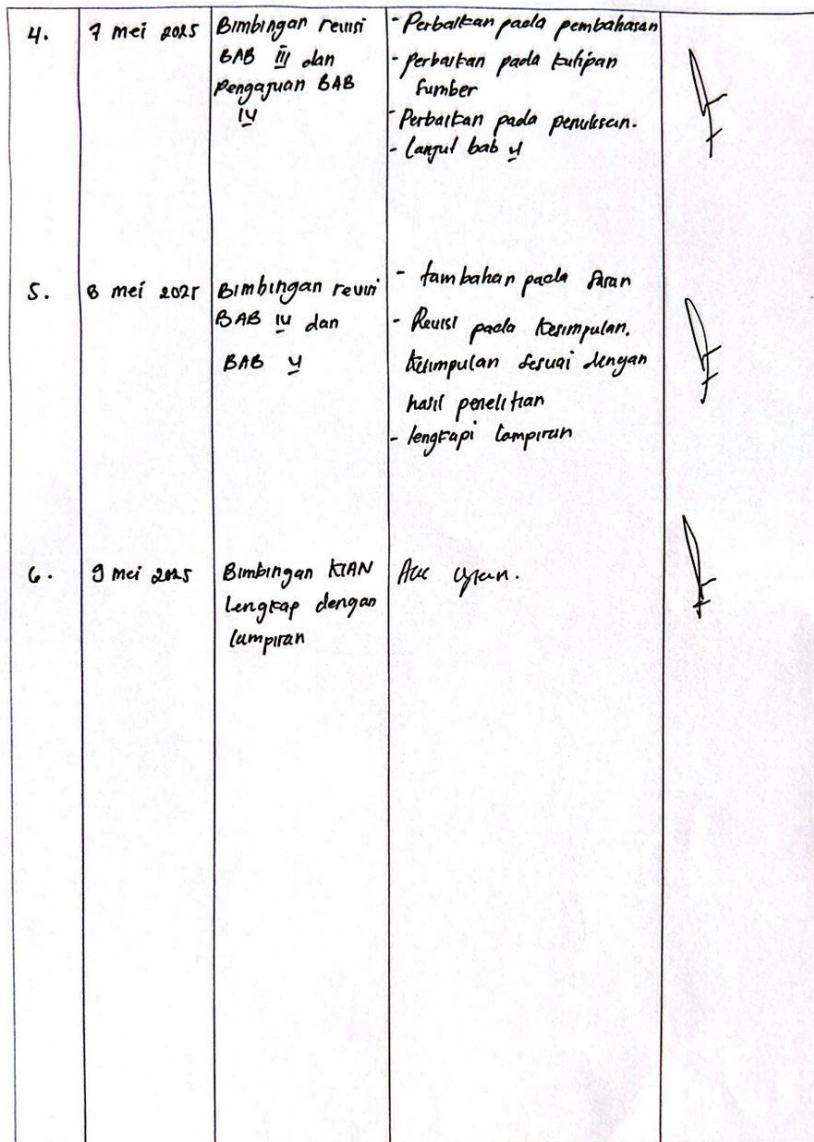 4.
7 mei 2025
Bimbingan revisi
BAB III dan
Pengajuan BAB
IV
- Perbaikan pada pembahasan
- perbaikan pada kutipan
sumber
- Perbaikan pada penulisan.
- Lanjut bab V
5.
8 mei 2025
Bimbingan revisi
BAB IV dan
BAB V
- tambahan pada saran
- Revisi pada kesimpulan.
kesimpulan sesuai dengan
hasil penelitian
- lengkapi lampiran
6.
9 mei 2025
Bimbingan KIAN
Lengkap dengan
lampiran
Acc ujian.